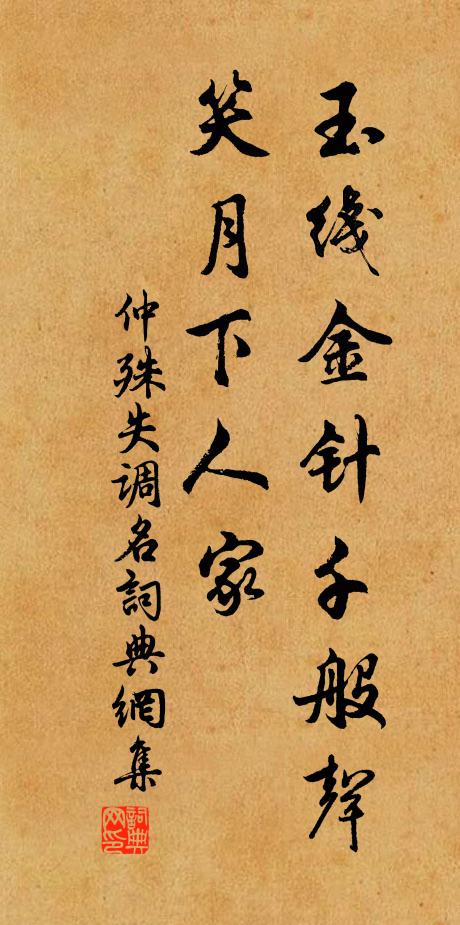 玉线金针千般聲
笑月下人家
仲殊失调名詞典網集
詞典网印